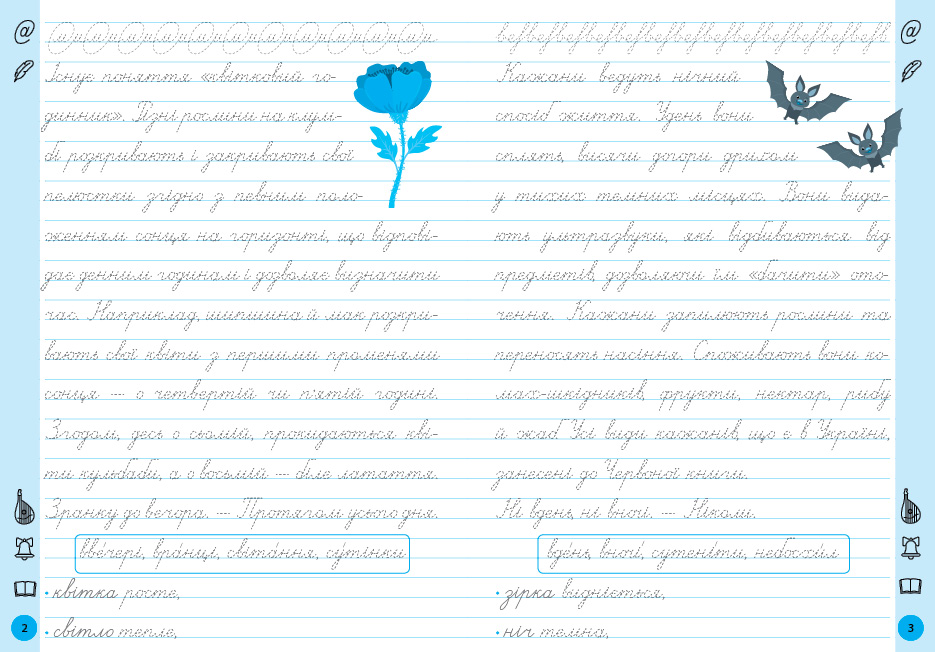 Існує поняття «квітковий го-
динник». Різні рослини на клум-
бі розкривають і закривають свої
пелюстки згідно з певним поло-
женням сонця на горизонті, що відпові-
дає денним годинам і дозволяє визначити
час. Наприклад, шипшина й мак розкри-
вають свої квіти з першими променями
сонця — о четвертій чи п'ятій годині.
Згодом, десь о сьомій, прокидаються кві-
ти кульбаби, а о восьмій — біле латаття.
Зранку до вечора. — Протягом усього дня.
вве́чері, вра́нці, світа́ння, су́тінки
• квітка росте,
• світло тепле,
2
Кажани ведуть нічний
спосіб життя. Удень вони
сплять, висячи догори дригом
у тихих темних місцях. Вони вида-
ють ультразвуки, які відбиваються від
предметів, дозволяючи їм «бачити» ото-
чення. Кажани запилюють рослини та
переносять насіння. Споживають вони ко-
мах-шкідників, фрукти, нектар, рибу
й жаб. Усі види кажанів, що є в Україні,
занесені до Червоної книги.
Ні вдень, ні вночі. — Ніколи.
вде́нь, вночі, сутені́ти, небосхи́л
• зірка видніється,
• ніч темна,
3